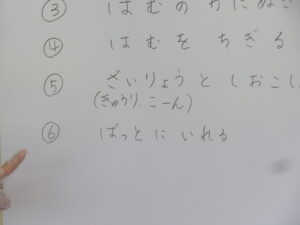 ③ はむの かにぬき
④ はむを ちぎる
⑤ ざいりょうと しおこし
(きゅうり、こーん)
⑥ ばっとに いれる